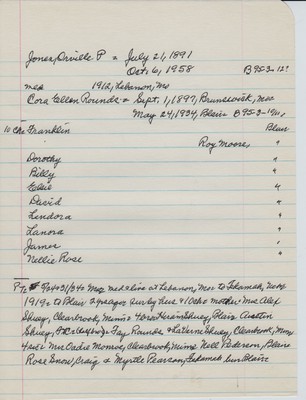 Jones, Orville P = July 21, 1891
Oct. 6, 1958 B 95-3-12
med 1912, Lebanon, Mo
Cora Ellen Rounds = Sept. 1, 1897, Brunswick, Mo
May 24, 1934, Blair B 95-3-
10 Ch: Franklin Blair
Roy Moore, "
Dorothy "
Billy "
Elsie "
David "
Lindora "
Lanora "
James "
Nellie Rose "
5/24-31/34
med at Lebanon, Mo to Tekamah, Nebr
1919 to Blair 2 yrs ago, surv by hus & 10 ch & mother Mrs Alex
Shuey, Clearbrook, Minn & 4 bro Hiram Shuey, Blair Austin
Shuey, & Fay Rounds & LaVerne Shuey, Clearbrook, Minn
4 sis Mrs Oadie Monroe, Clearbrook, Minn Nell Pederson, Blair
Rose Snow, Craig & Myrtle Pearson, Tekamah bur Blair